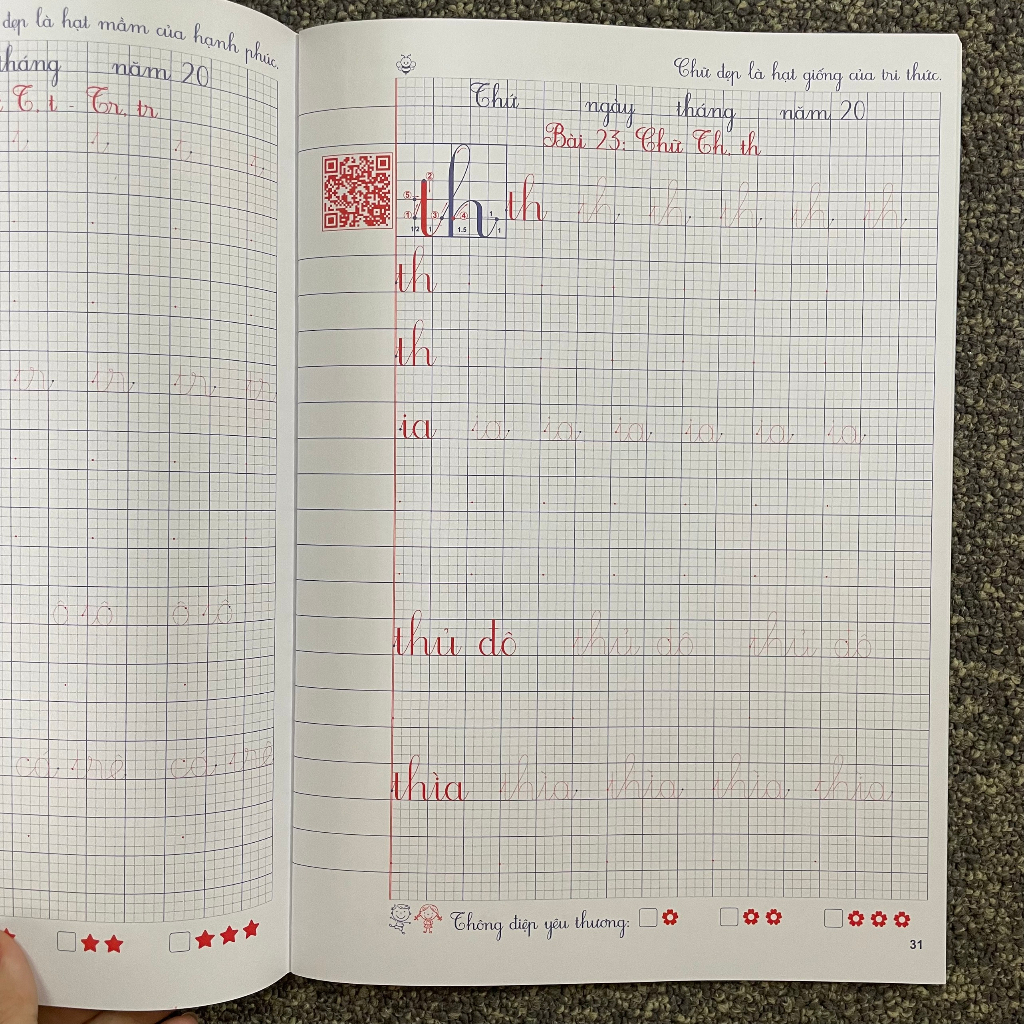 đẹp là hạt mầm của hạnh phúc.
tháng năm 20
T, t - Tr, tr
tr tr tr tr
ô tô ô tô
cá trê cá trê
Chữ đẹp là hạt giống của tri thức.
Thứ ngày tháng năm 20
Bài 23: Chữ Th, th
5 2 1 3 4 1 1/2 1 1.5 1
th th th th th th th
th
th
ia ia ia ia ia ia ia
thủ đô thủ đô thủ đô
thìa thìa thìa thìa thìa
Thông điệp yêu thương:
31